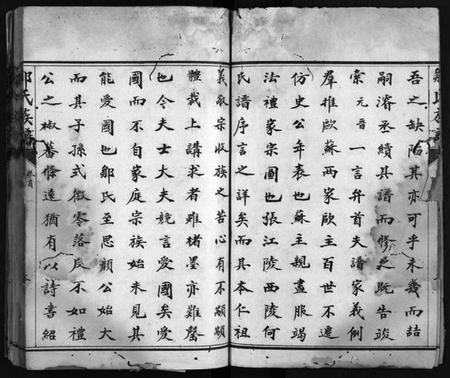 吾之缺陷其亦可乎未幾而詰
嗣濬丞續具譜而修之既告竣
索元晉一言弁首夫譜家義例
羣推歐蘇兩家歐主百世不遷
仿史公年表也蘇主親盡服竭
法禮家宗圖也張江陵西陵何
氏譜序言之詳矣而其本仁祖
義敬宗收族之苦心有不顯顯
體裁上講求者雖楮墨亦難罄
也今夫士大夫競言愛國矣愛
國而不自家庭宗族始未見其
能愛國也鄒氏至思顏公始大
而其子孫式微零落反不如禮
公之椒蕃條遠猶有以詩書紹
鄒氏族譜